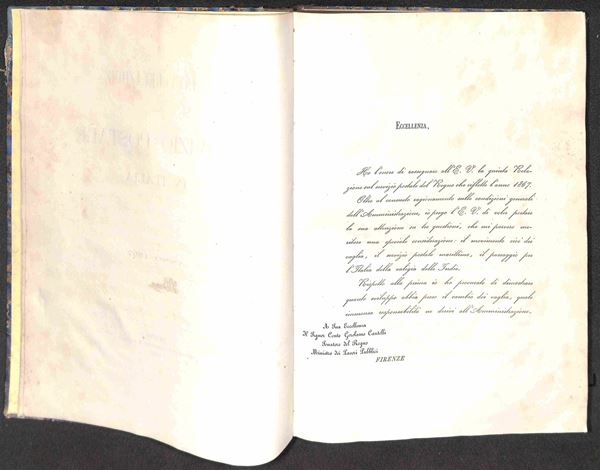 ECCELLENZA,
Ho l'onore di rassegnare all'E. V. la quinta Rela-
zione sul servizio postale del Regno che riflette l'anno 1867.
Oltre al consueto ragionamento sulle condizioni generali
dell'Amministrazione, io prego l'E. V. di voler portare
la sua attenzione su tre quistioni, che mi paiono me-
ritare una speciale considerazione: il movimento cioè dei
vaglia, il servizio postale marittimo, il passaggio per
l'Italia della valigia delle Indie.
Rispetto alla prima io ho procurato di dimostrare
quanto sviluppo abbia preso il cambio dei vaglia, quale
immensa responsabilità ne derivi all'Amministrazione,
A Sua Eccellenza
Il Signor Conte Girolamo Cantelli
Senatore del Regno
Ministro dei Lavori Pubblici
FIRENZE